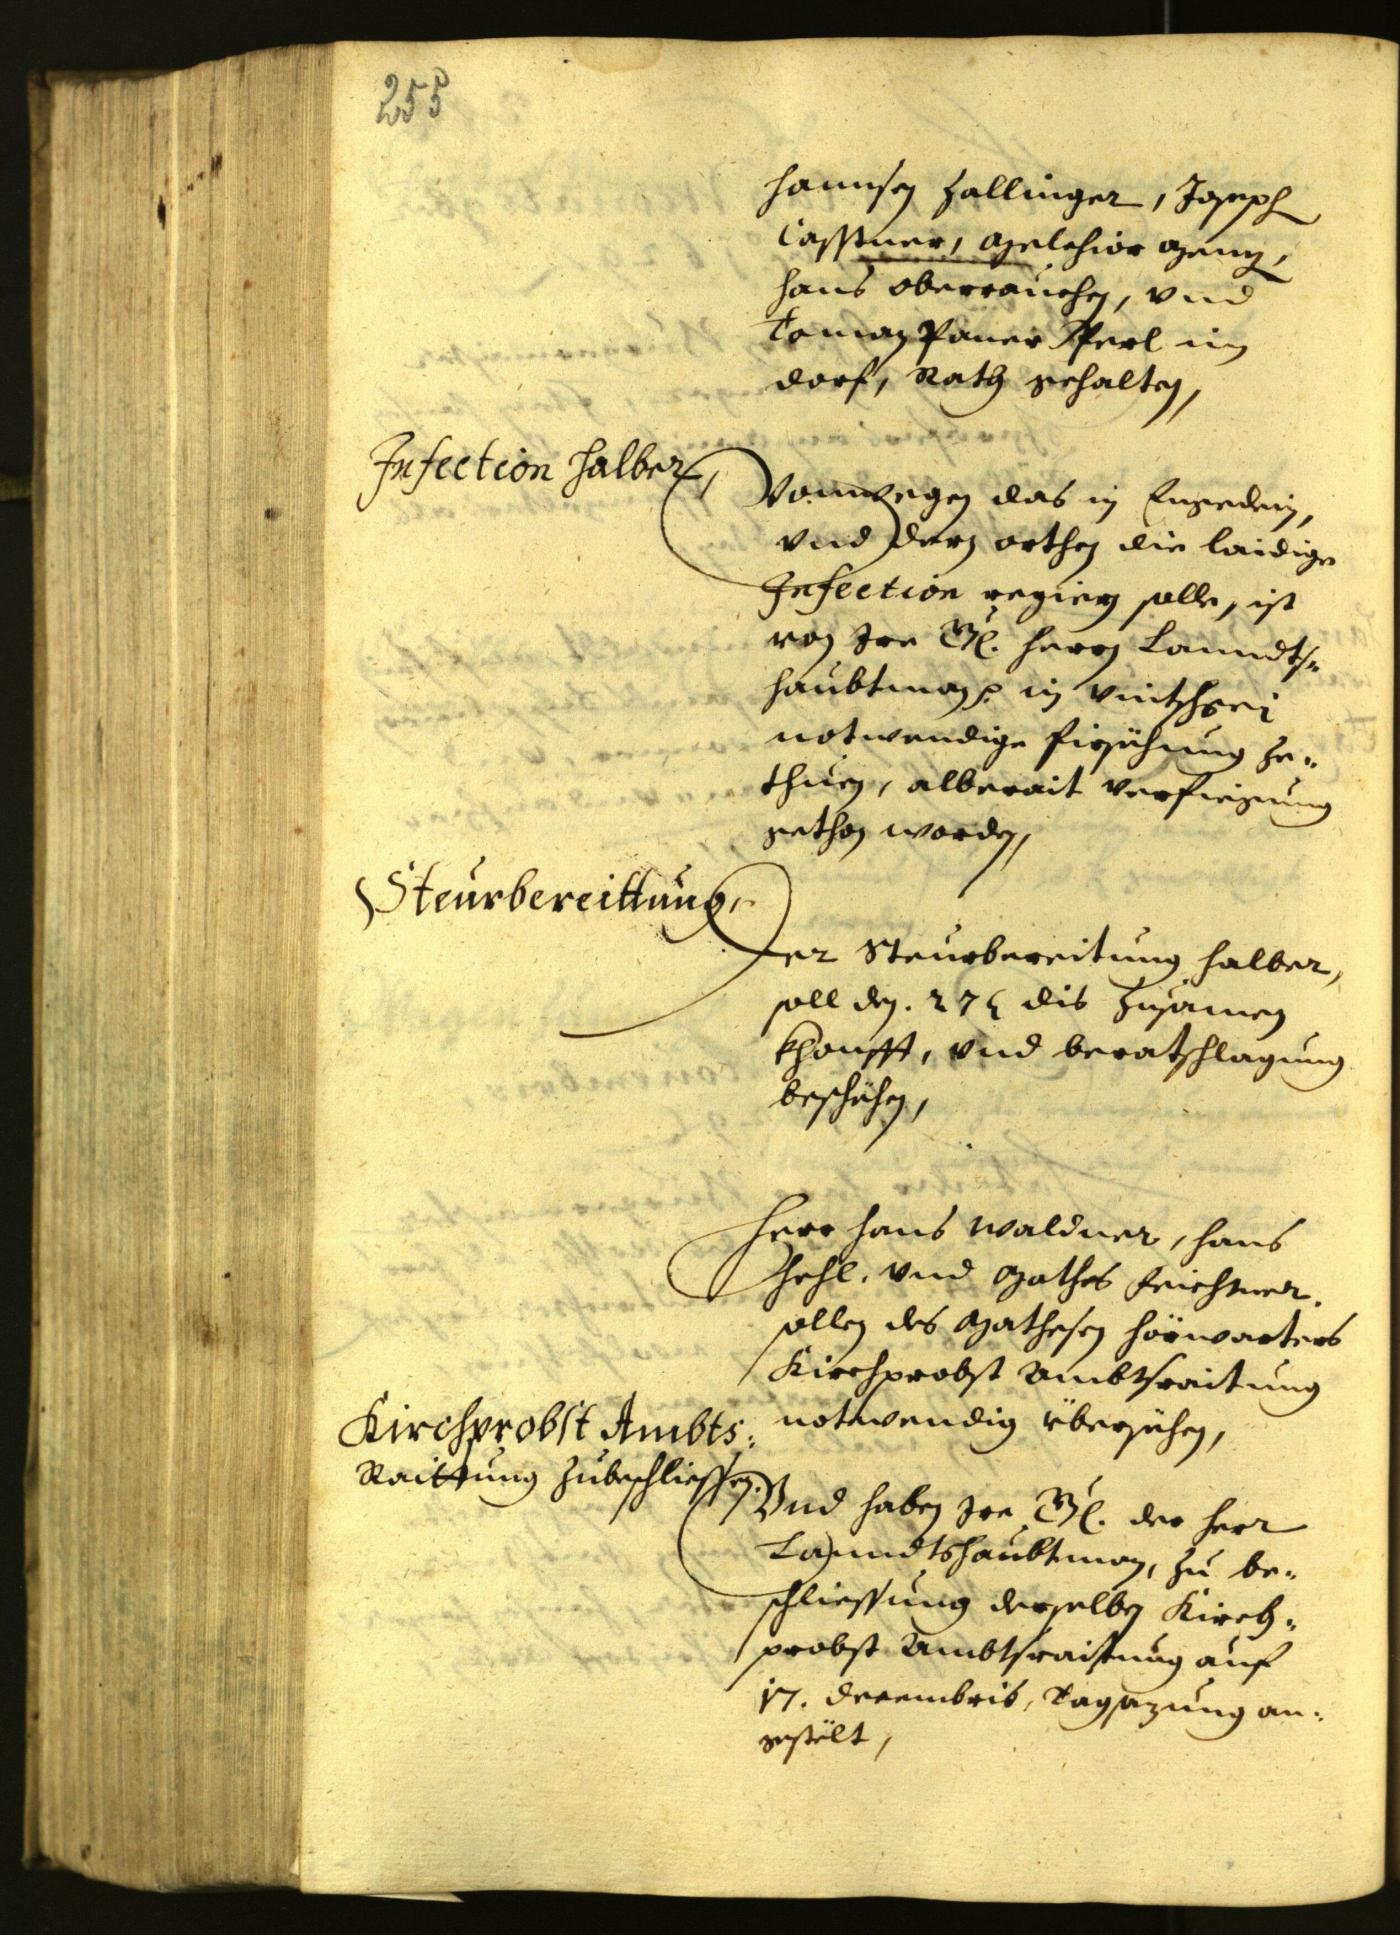 255
Hannsen Zallinger, Joseph
Casstner, Melchior Meng,
Hans Oberrauchen, vnd
Toman Paner Perl im
dorf, Rath gehalten,
Infection halber,
Vonwegen das in Engedein,
vnd dern orthen die laidige
Infection regiern solle, ist
von Ire Gl. herrn Lanndts-
haubtman p. in Vintschgei
notwendige firsühung ze-
thuen, alberait verfiegung
gethon worden,
Steurbereittung,
Der Steurbereitung halber,
soll den . 27t dis Zusamen
khonfft, vnd beratschlagung
beschehen,
Herr Hans Waldner, Hans
vnd Mathes Feichtner,
sollen des Mathesen Hörwarters
Kirchprobst Ambtsraitung
notwendig übersühen,
Kirchprobst Ambts:
Raittung Zubeschliessen.
Vnd haben Ire Gl. der herr
Lanndtshaubtman, zu be-
schliessung derselben Kirch-
probst Ambtsraittung auf
17. Decembris, Tagsazung an-
gestölt,